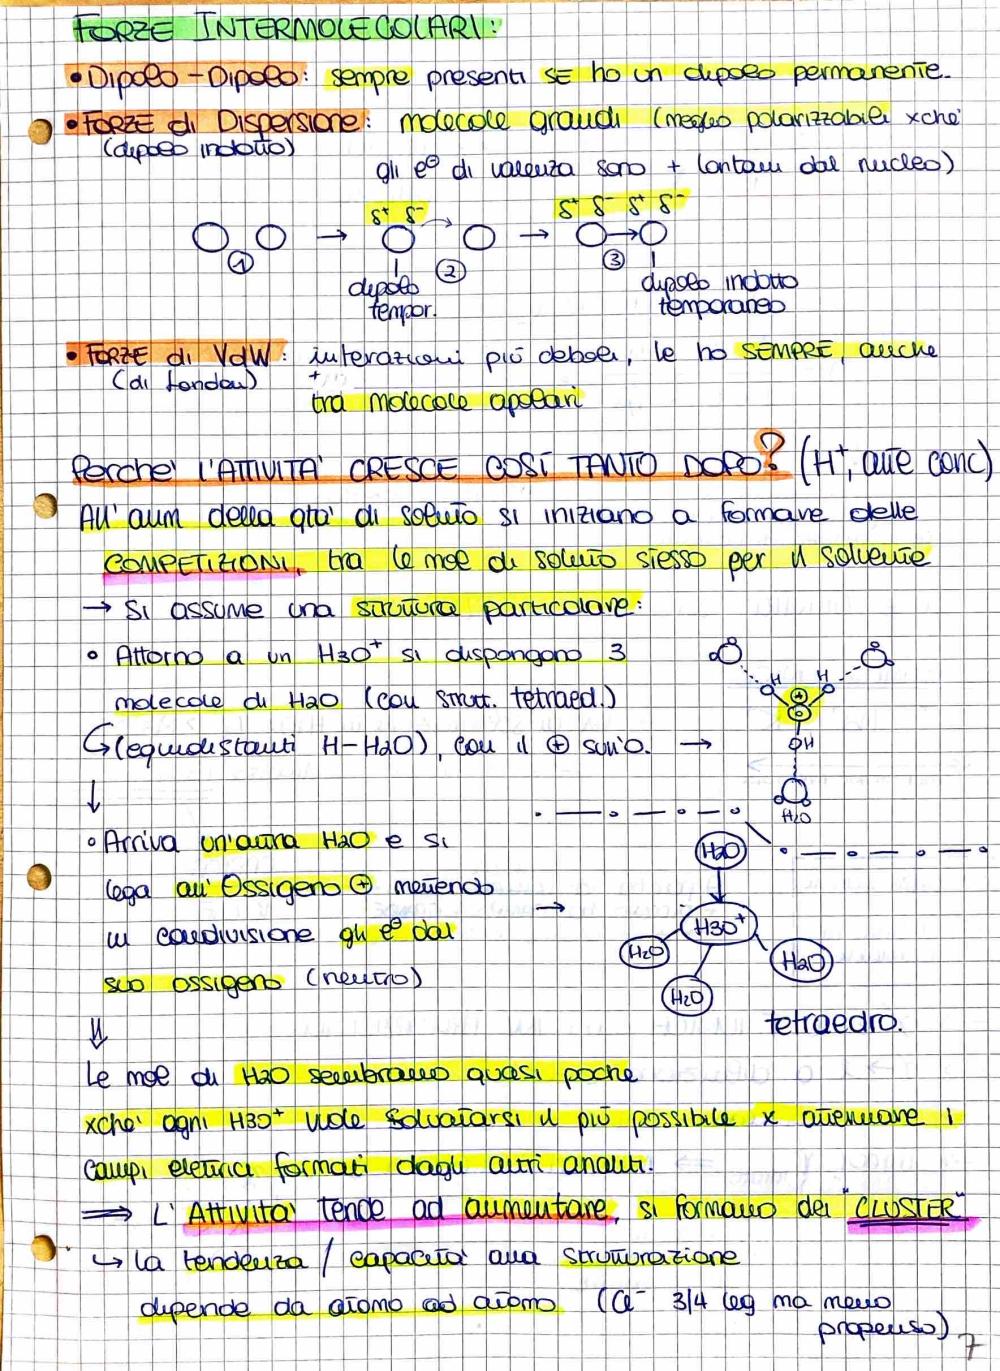 FORZE INTERMOLECOLARI:
• Dipolo - Dipolo: sempre presenti SE ho un dipolo permanente.
• FORZE di Dispersione: molecole grandi (meglio polarizzabili xché
(dipolo indotto)
gli e⊖ di valenza sono + lontani dal nucleo)
δ+ δ- δ+ δ- δ+ δ-
→ →
1 2 3
dipolo dipolo indotto
tempor. temporaneo
• FORZE di VdW: interazioni più deboli, le ho SEMPRE, anche
(di London) +
tra molecole apolari
Perche' L'ATTIVITA' CRESCE COSÌ TANTO DOPO? (H+, alte conc)
All' aum della qta' di soluto si iniziano a formare delle
COMPETIZIONI, tra le mol di soluto stesso per il solvente
→ Si assume una struttura particolare:
• Attorno a un H3O+ si dispongono 3
molecole di H2O (con strutt. tetraed.)
(equidistanti H-H2O), con il ⊕ sull'O. →
H H
⊕
O
OH
H2O
• Arriva un'altra H2O e si
lega all' Ossigeno ⊕ mettendo
in condivisione gli e⊖ dal
suo ossigeno (neutro)
→
H2O
H3O+
H2O H2O
H2O
tetraedro.
Le mol di H2O sembrano quasi poche
xche' ogni H3O+ vuole solvatarsi il più possibile x attenuare i
campi elettrici formati dagli altri analiti.
⇒ L' Attività tende ad aumentare, si formano dei "CLUSTER"
↳ la tendenza / capacità alla strutturazione
dipende da atomo ad atomo (Cl- 3/4 leg ma meno
propenso)
7